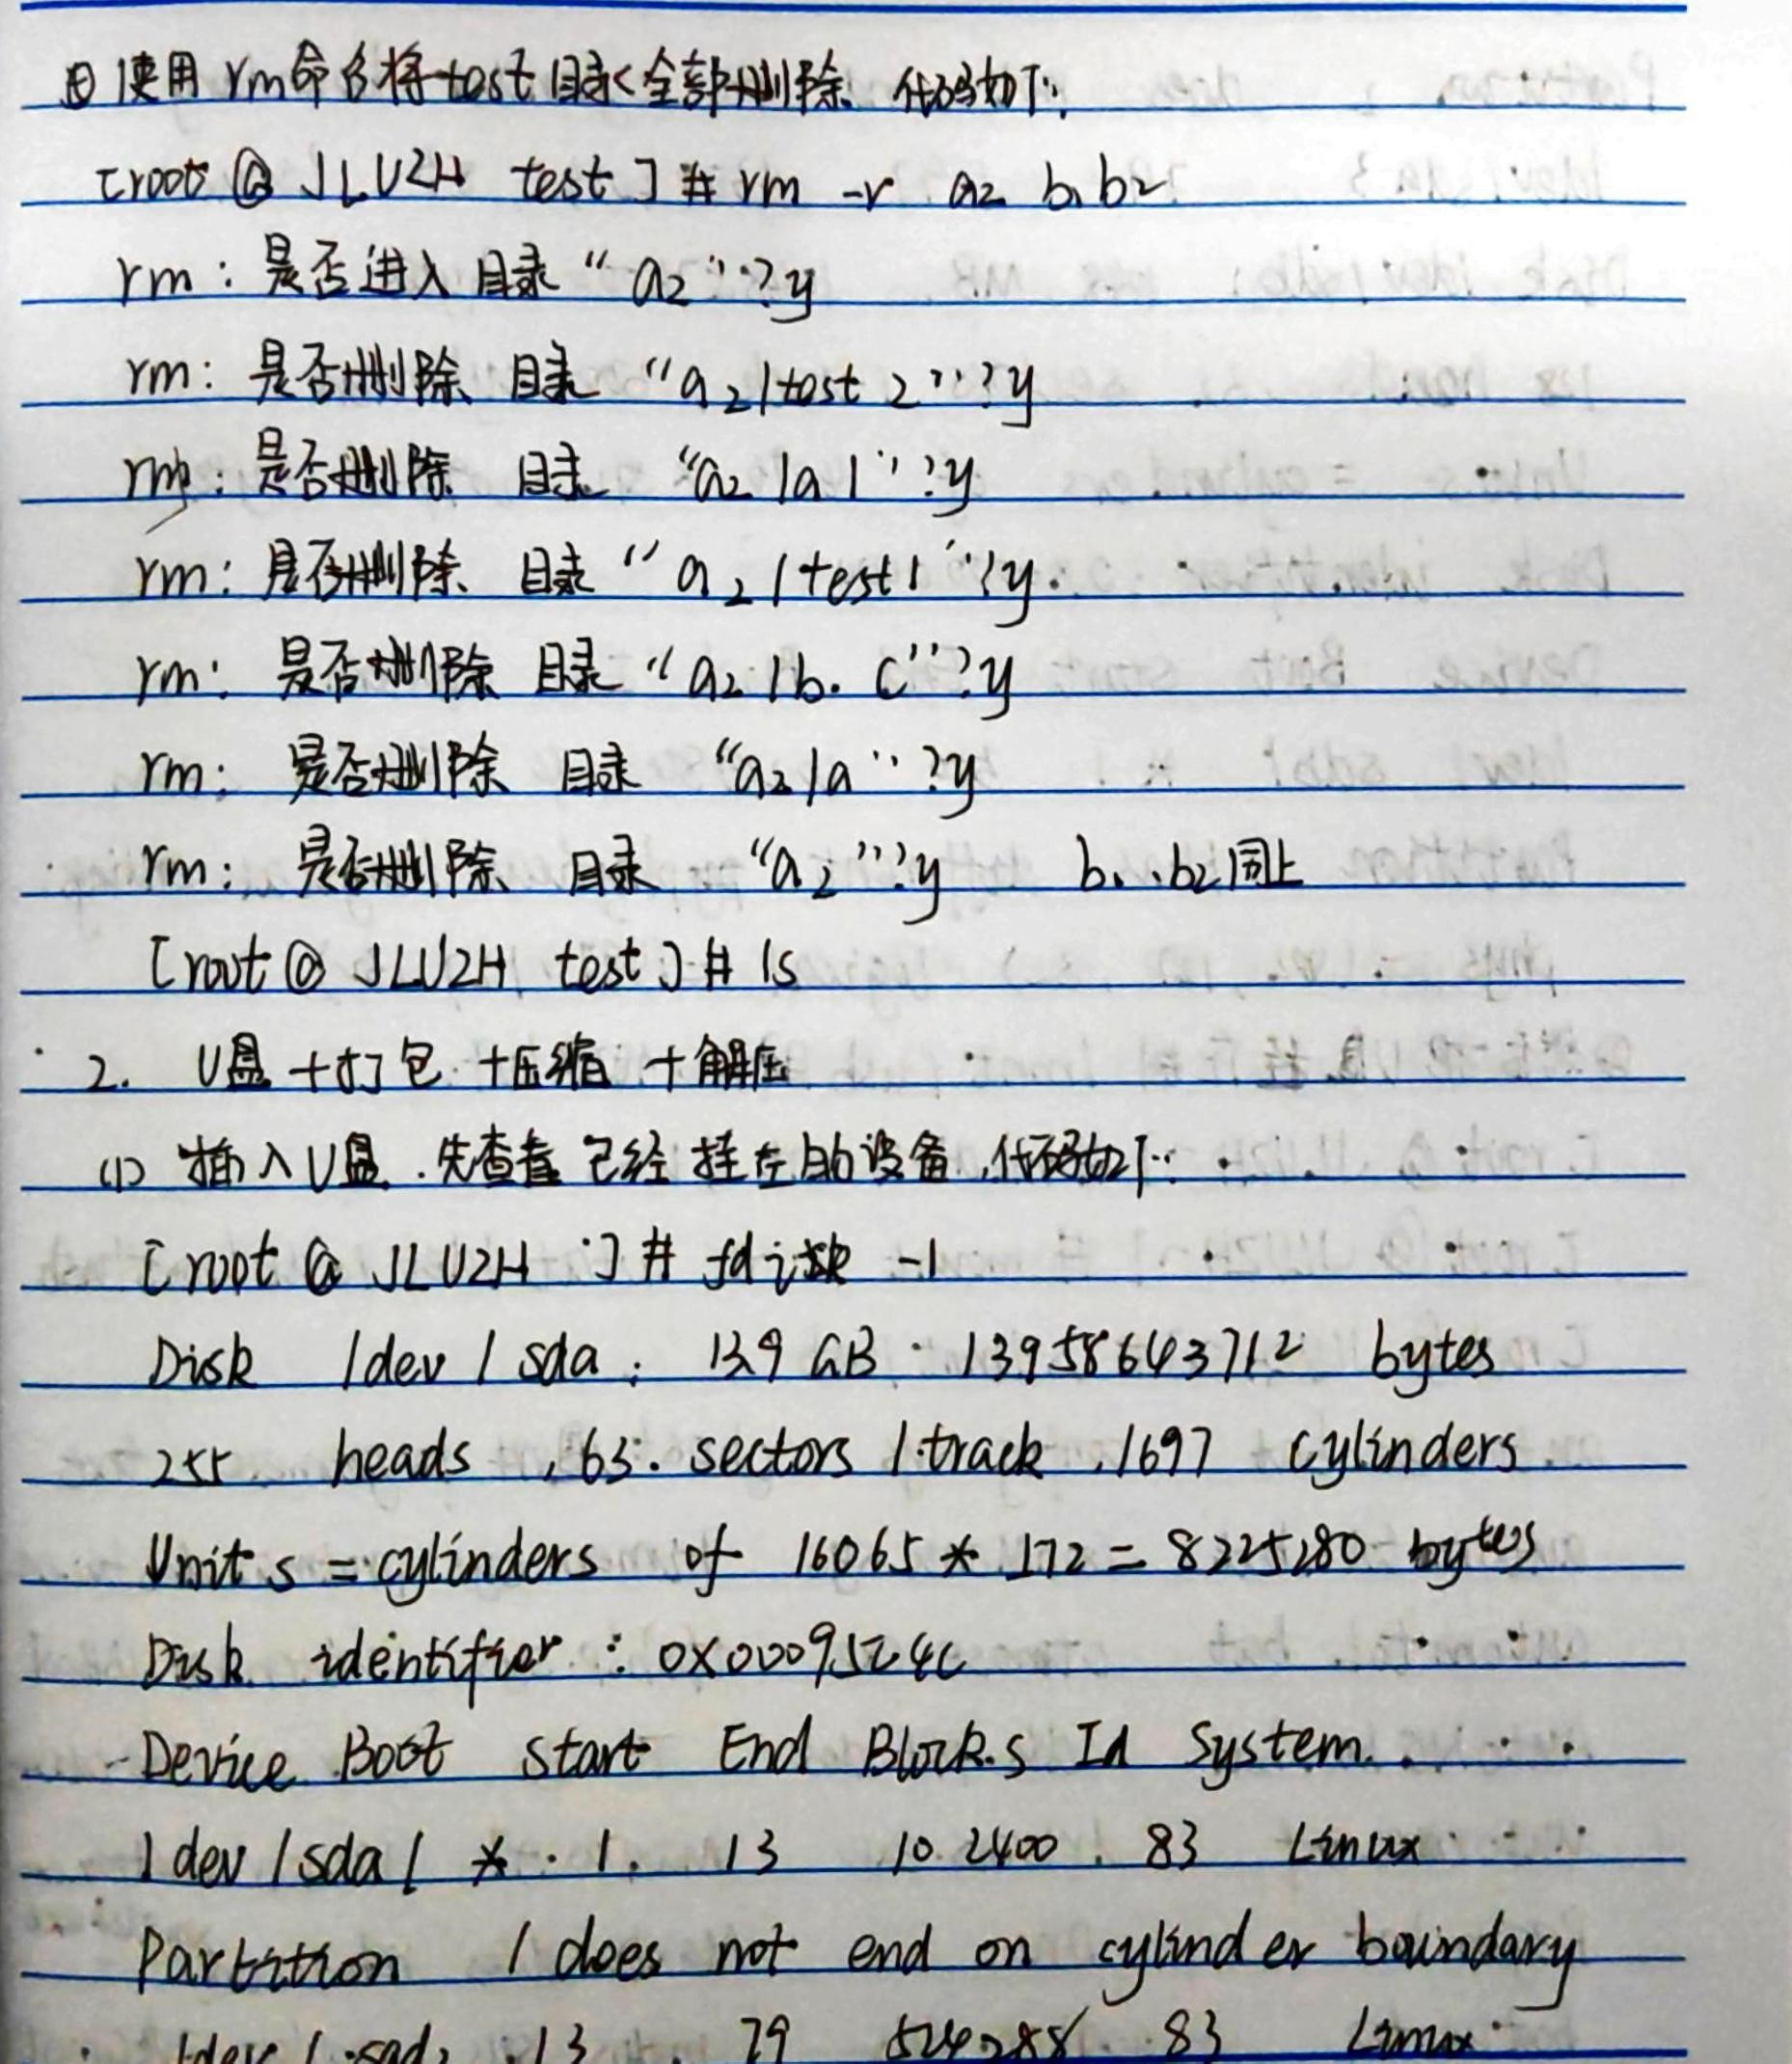 日使用rm命名将test目录全部删除 代码如下:
[root @ JLUZH test ] # rm -r a2 b1 b2
rm : 是否进入目录 “ a2 ” ? y
rm : 是否删除 目录 “a2/test 2” ? y
rm : 是否删除 目录 “a2 /a 1” ? y
rm : 是否删除 目录 “ a2 /test1 ” ? y.
rm : 是否删除 目录 “ a2 /b. C” ? y
rm : 是否删除 目录 “a2/a” ? y
rm : 是否删除 目录 “a2” ? y b1, b2同上
[root @ JLUZH test ] # ls
2. U盘+打包+压缩+解压
(1) 插入U盘.先查看已经挂在的设备,代码如下:
[root @ JLUZH ~] # fdisk -l
Disk /dev / sda : 13.9 GB , 13958643712 bytes
255 heads , 63 sectors / track , 1697 cylinders
Units = cylinders of 16065 * 512 = 8225280 bytes
Disk identifier : 0x0009524c
Device Boot Start End Blocks Id System
/dev /sda1 * 1 13 102400 83 Linux
Partition 1 does not end on cylinder boundary
/dev / sad2 13 79 524288 83 Linux